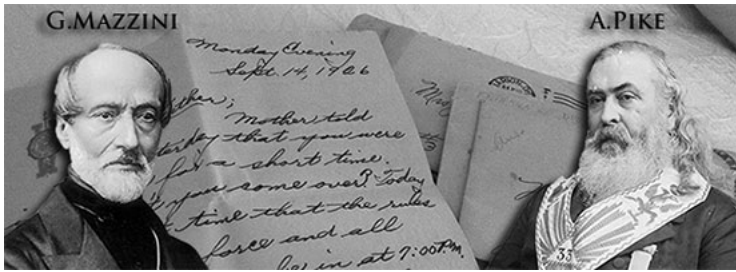 G.MAZZINI
A.PIKE
Monday Evening
Sept. 14, 1906
Mother told
that you were
for a short time.
you come over? Today
time that the rules
force and all
be in at 7:00 P.M.
33